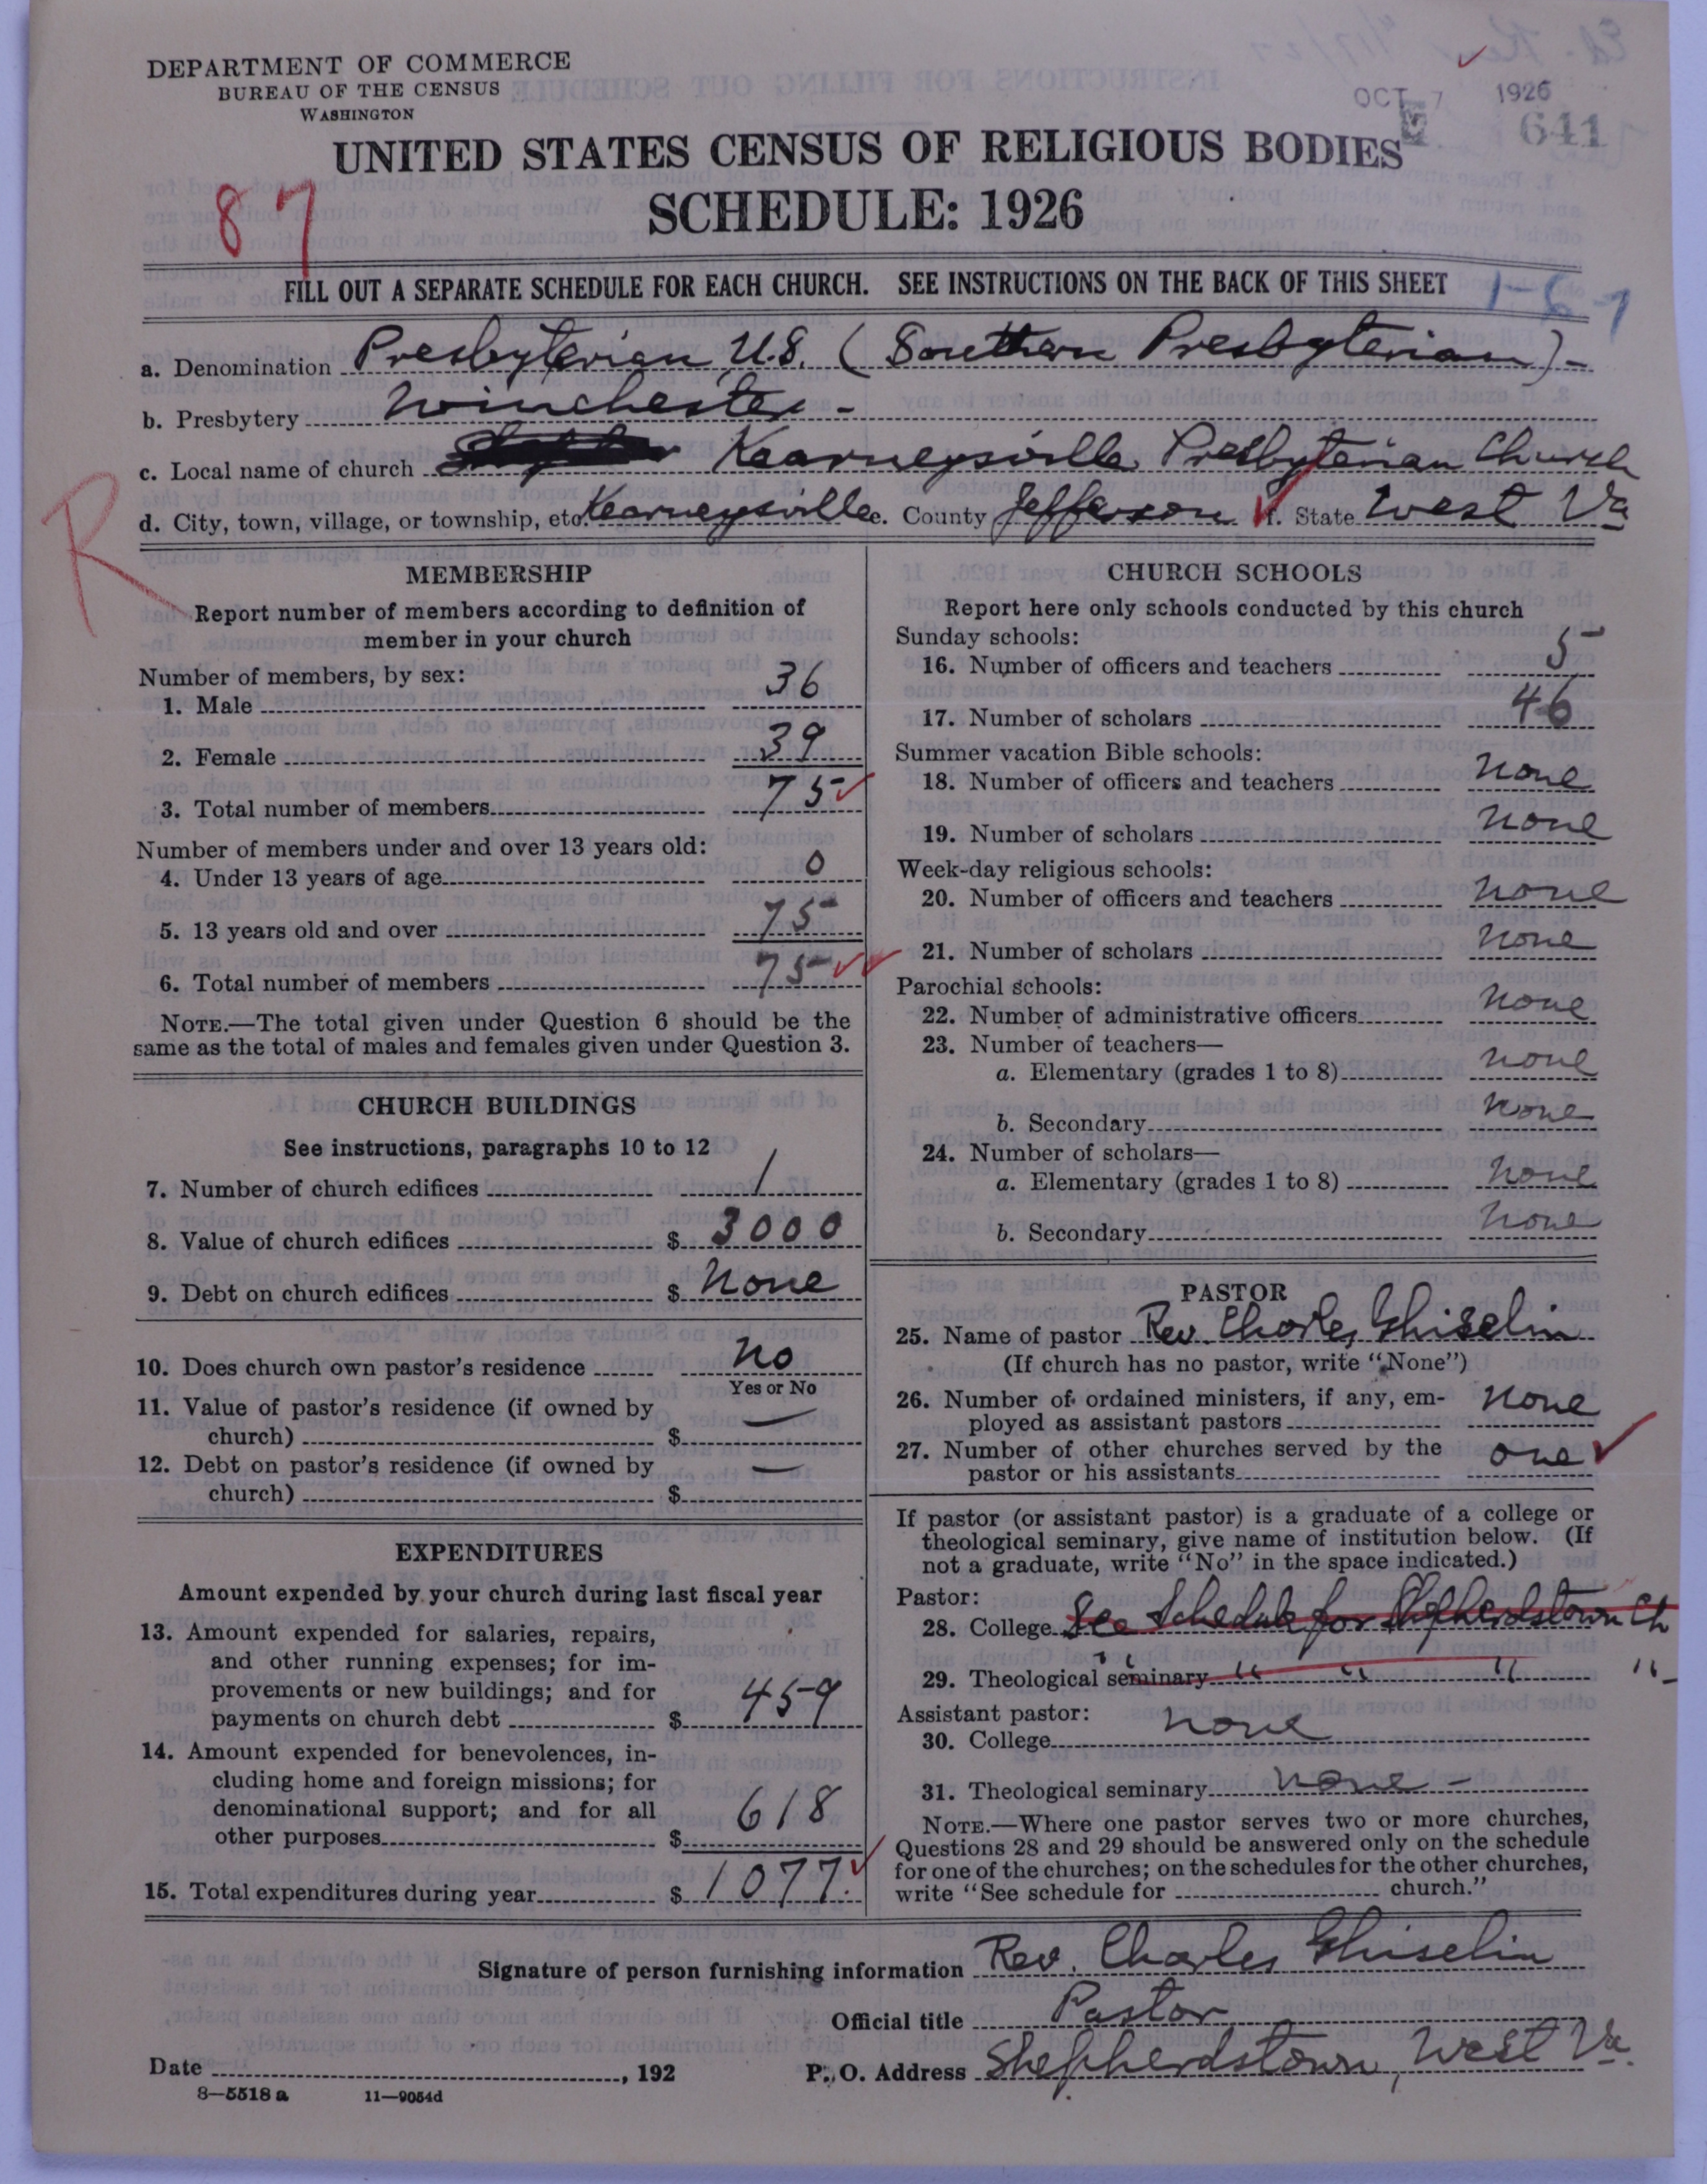 DEPARTMENT OF COMMERCE
BUREAU OF THE CENSUS
WASHINGTON
OCT 7 1926
641
UNITED STATES CENSUS OF RELIGIOUS BODIES
SCHEDULE: 1926
87
FILL OUT A SEPARATE SCHEDULE FOR EACH CHURCH. SEE INSTRUCTIONS ON THE BACK OF THIS SHEET
1-67
a. Denomination Presbyterian U.S. (Southern Presbyterian)-
b. Presbytery Winchester -
c. Local name of church Kearneysville Presbyterian Church
d. City, town, village, or township, etc. Kearneysville e. County Jefferson f. State West Va
R
MEMBERSHIP
Report number of members according to definition of
member in your church
Number of members, by sex:
1. Male 36
2. Female 39
3. Total number of members 75
Number of members under and over 13 years old:
4. Under 13 years of age 0
5. 13 years old and over 75
6. Total number of members 75
NOTE.—The total given under Question 6 should be the
same as the total of males and females given under Question 3.
CHURCH BUILDINGS
See instructions, paragraphs 10 to 12
7. Number of church edifices 1
8. Value of church edifices $ 3000
9. Debt on church edifices $ None
10. Does church own pastor's residence No
Yes or No
11. Value of pastor's residence (if owned by
church) $ —
12. Debt on pastor's residence (if owned by
church) $ —
EXPENDITURES
Amount expended by your church during last fiscal year
13. Amount expended for salaries, repairs,
and other running expenses; for im-
provements or new buildings; and for
payments on church debt $ 459
14. Amount expended for benevolences, in-
cluding home and foreign missions; for
denominational support; and for all
other purposes $ 618
15. Total expenditures during year $ 1077.
CHURCH SCHOOLS
Report here only schools conducted by this church
Sunday schools:
16. Number of officers and teachers 5
17. Number of scholars 46
Summer vacation Bible schools:
18. Number of officers and teachers none
19. Number of scholars none
Week-day religious schools:
20. Number of officers and teachers none
21. Number of scholars none
Parochial schools:
22. Number of administrative officers none
23. Number of teachers—
a. Elementary (grades 1 to 8) none
b. Secondary none
24. Number of scholars—
a. Elementary (grades 1 to 8) none
b. Secondary none
PASTOR
25. Name of pastor Rev. Charles Ghiselin
(If church has no pastor, write "None")
26. Number of ordained ministers, if any, em-
ployed as assistant pastors none
27. Number of other churches served by the
pastor or his assistants one
If pastor (or assistant pastor) is a graduate of a college or
theological seminary, give name of institution below. (If
not a graduate, write "No" in the space indicated.)
Pastor:
28. College See Schedule for Shepherdstown Ch
29. Theological seminary " " " "
Assistant pastor:
30. College none
31. Theological seminary none -
NOTE.—Where one pastor serves two or more churches,
Questions 28 and 29 should be answered only on the schedule
for one of the churches; on the schedules for the other churches,
write "See schedule for church."
Signature of person furnishing information Rev. Charles Ghiselin
Official title Pastor
Date , 192 P. O. Address Shepherdstown, West Va.
8—5518 a 11—9054d